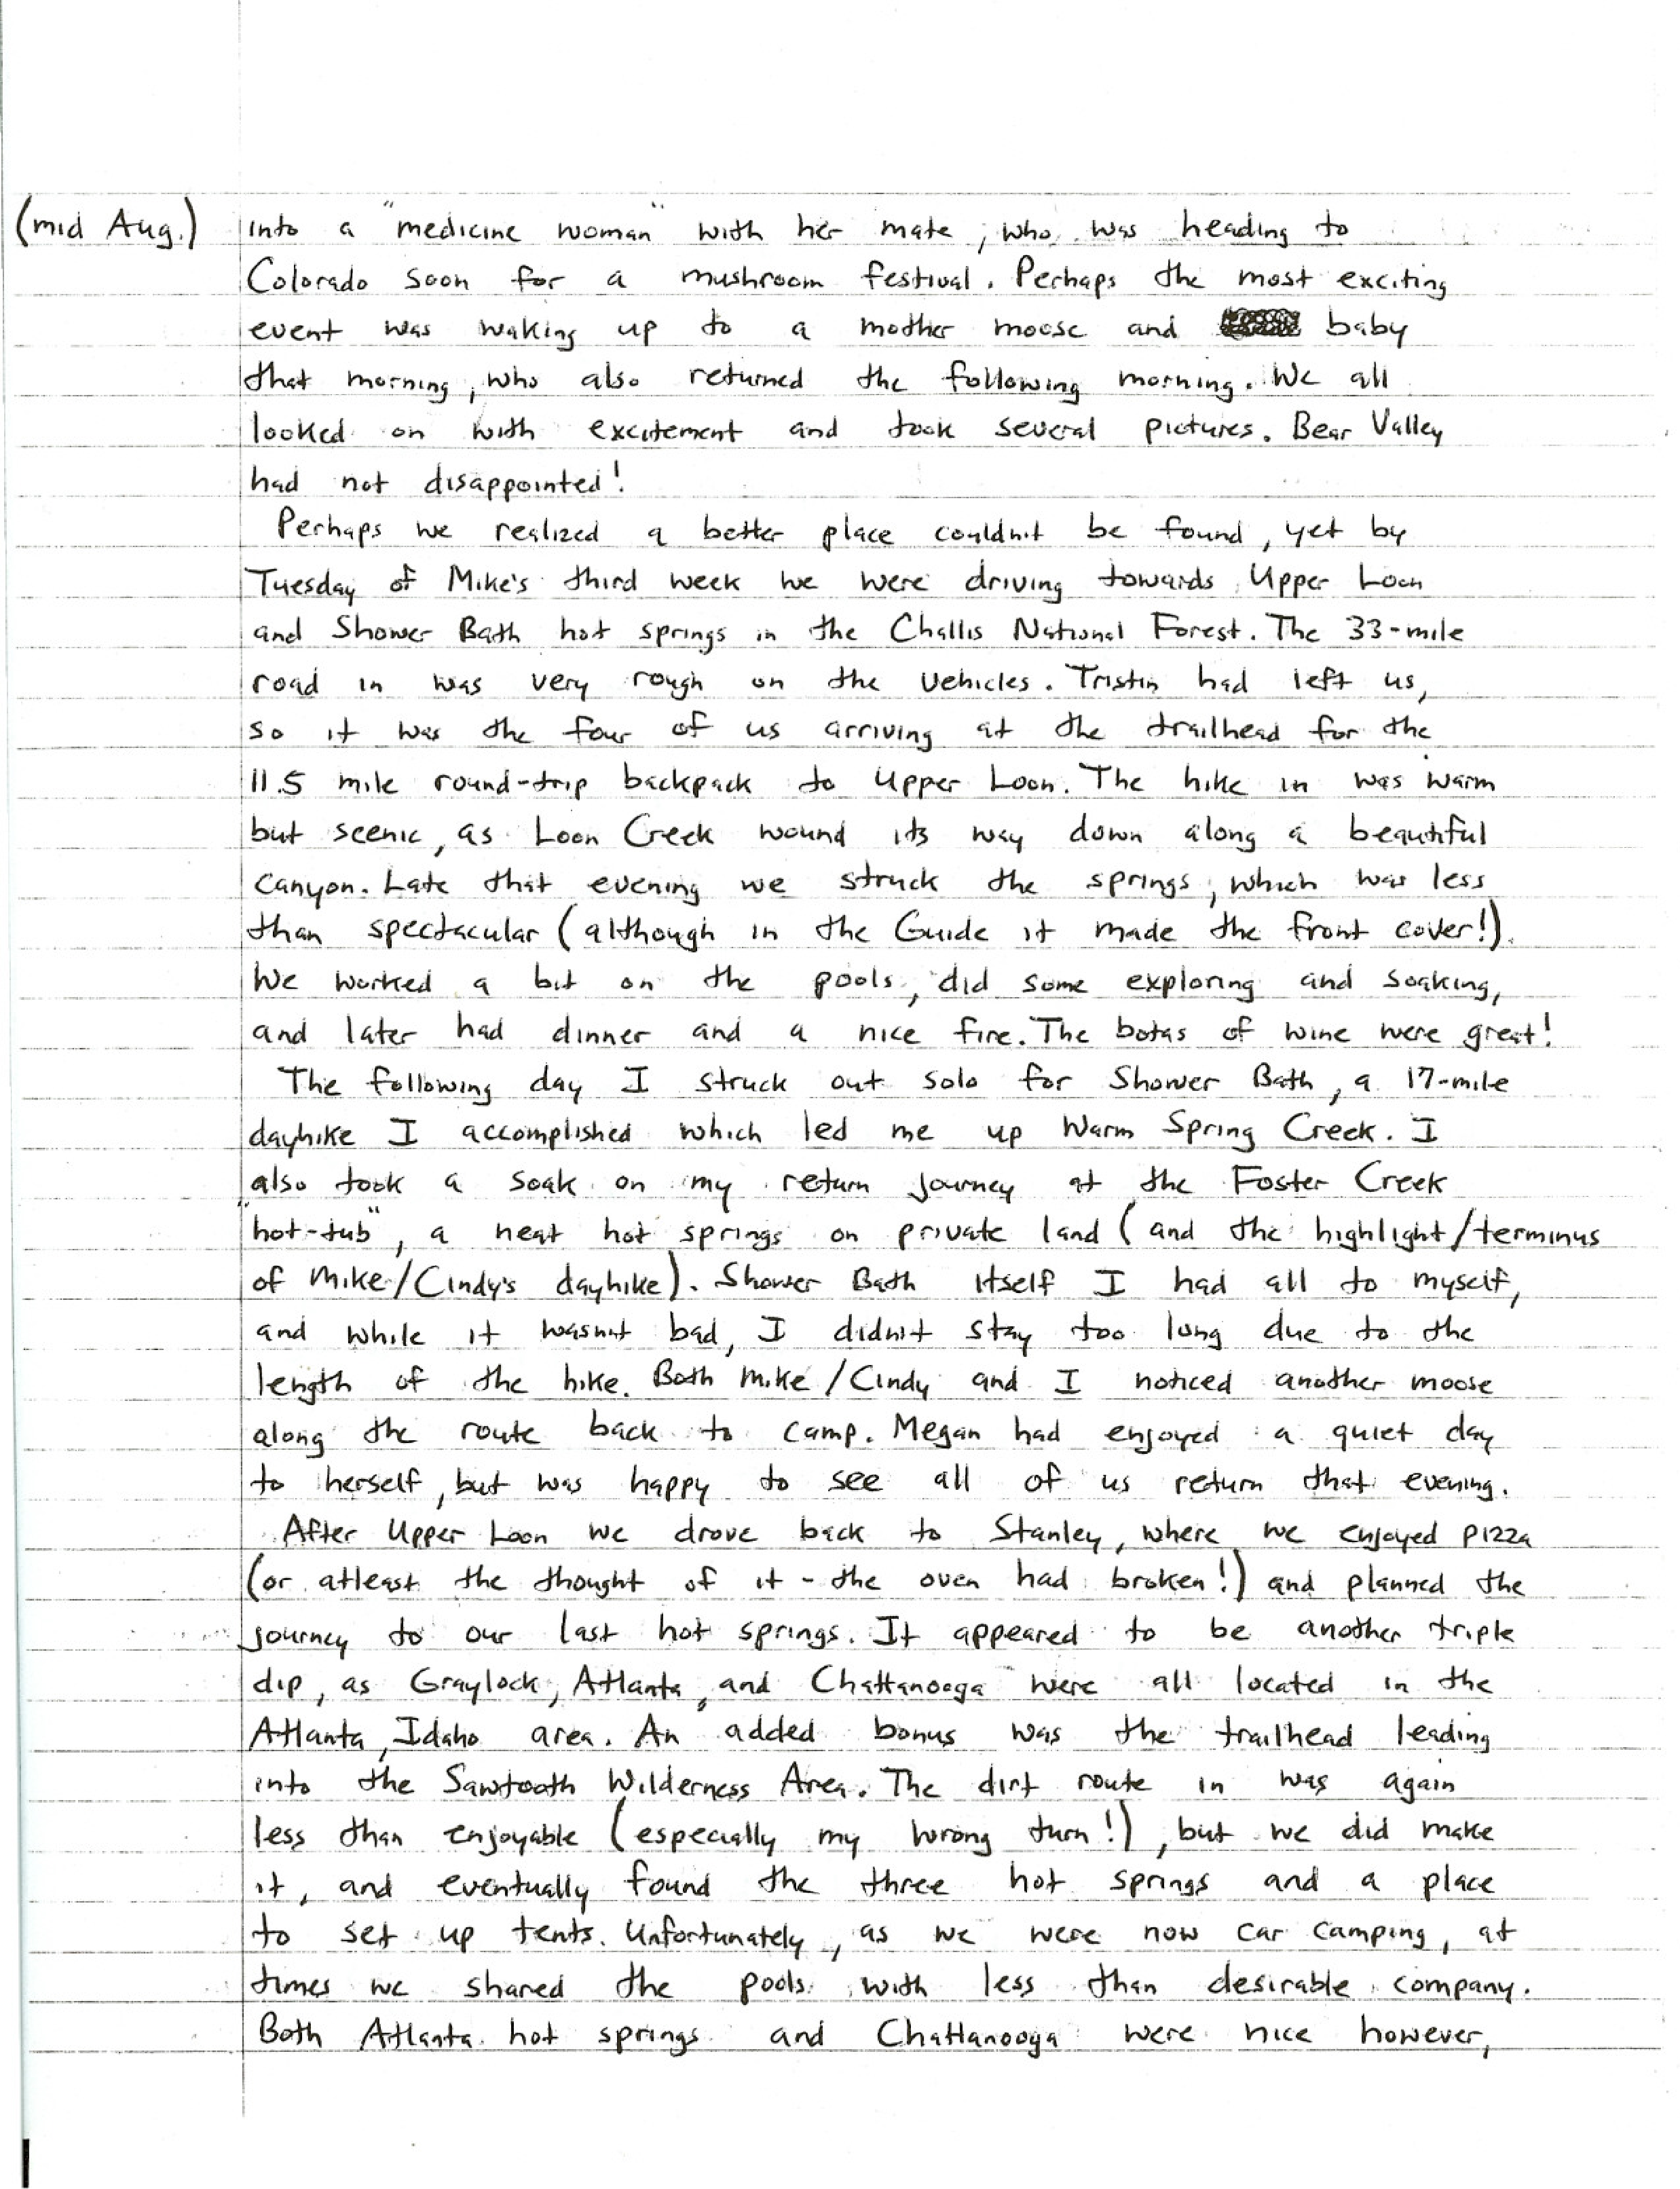 (mid Aug.) into a "medicine woman" with her mate, who was heading to
Colorado soon for a mushroom festival. Perhaps the most exciting
event was waking up to a mother moose and baby
that morning, who also returned the following morning. We all
looked on with excitement and took several pictures. Bear Valley
had not disappointed!
Perhaps we realized a better place couldn't be found, yet by
Tuesday of Mike's third week we were driving towards Upper Loon
and Shower Bath hot springs in the Challis National Forest. The 33-mile
road in was very rough on the vehicles. Tristin had left us,
so it was the four of us arriving at the trailhead for the
11.5 mile round-trip backpack to Upper Loon. The hike in was warm
but scenic, as Loon Creek wound its way down along a beautiful
canyon. Late that evening we struck the springs, which was less
than spectacular (although in the Guide it made the front cover!).
We worked a bit on the pools, did some exploring and soaking,
and later had dinner and a nice fire. The botas of wine were great!
The following day I struck out solo for Shower Bath, a 17-mile
dayhike I accomplished which led me up Warm Spring Creek. I
also took a soak on my return journey at the Foster Creek
"hot-tub", a neat hot springs on private land (and the highlight/terminus
of Mike/Cindy's dayhike). Shower Bath itself I had all to myself,
and while it wasn't bad, I didn't stay too long due to the
length of the hike. Both Mike/Cindy and I noticed another moose
along the route back to camp. Megan had enjoyed a quiet day
to herself, but was happy to see all of us return that evening.
After Upper Loon we drove back to Stanley, where we enjoyed pizza
(or atleast the thought of it - the oven had broken!) and planned the
journey to our last hot springs. It appeared to be another triple
dip, as Graylock, Atlanta, and Chattanooga were all located in the
Atlanta, Idaho area. An added bonus was the trailhead leading
into the Sawtooth Wilderness Area. The dirt route in was again
less than enjoyable (especially my wrong turn!), but we did make
it, and eventually found the three hot springs and a place
to set up tents. Unfortunately, as we were now car camping, at
times we shared the pools with less than desirable company.
Both Atlanta hot springs and Chattanooga were nice however,